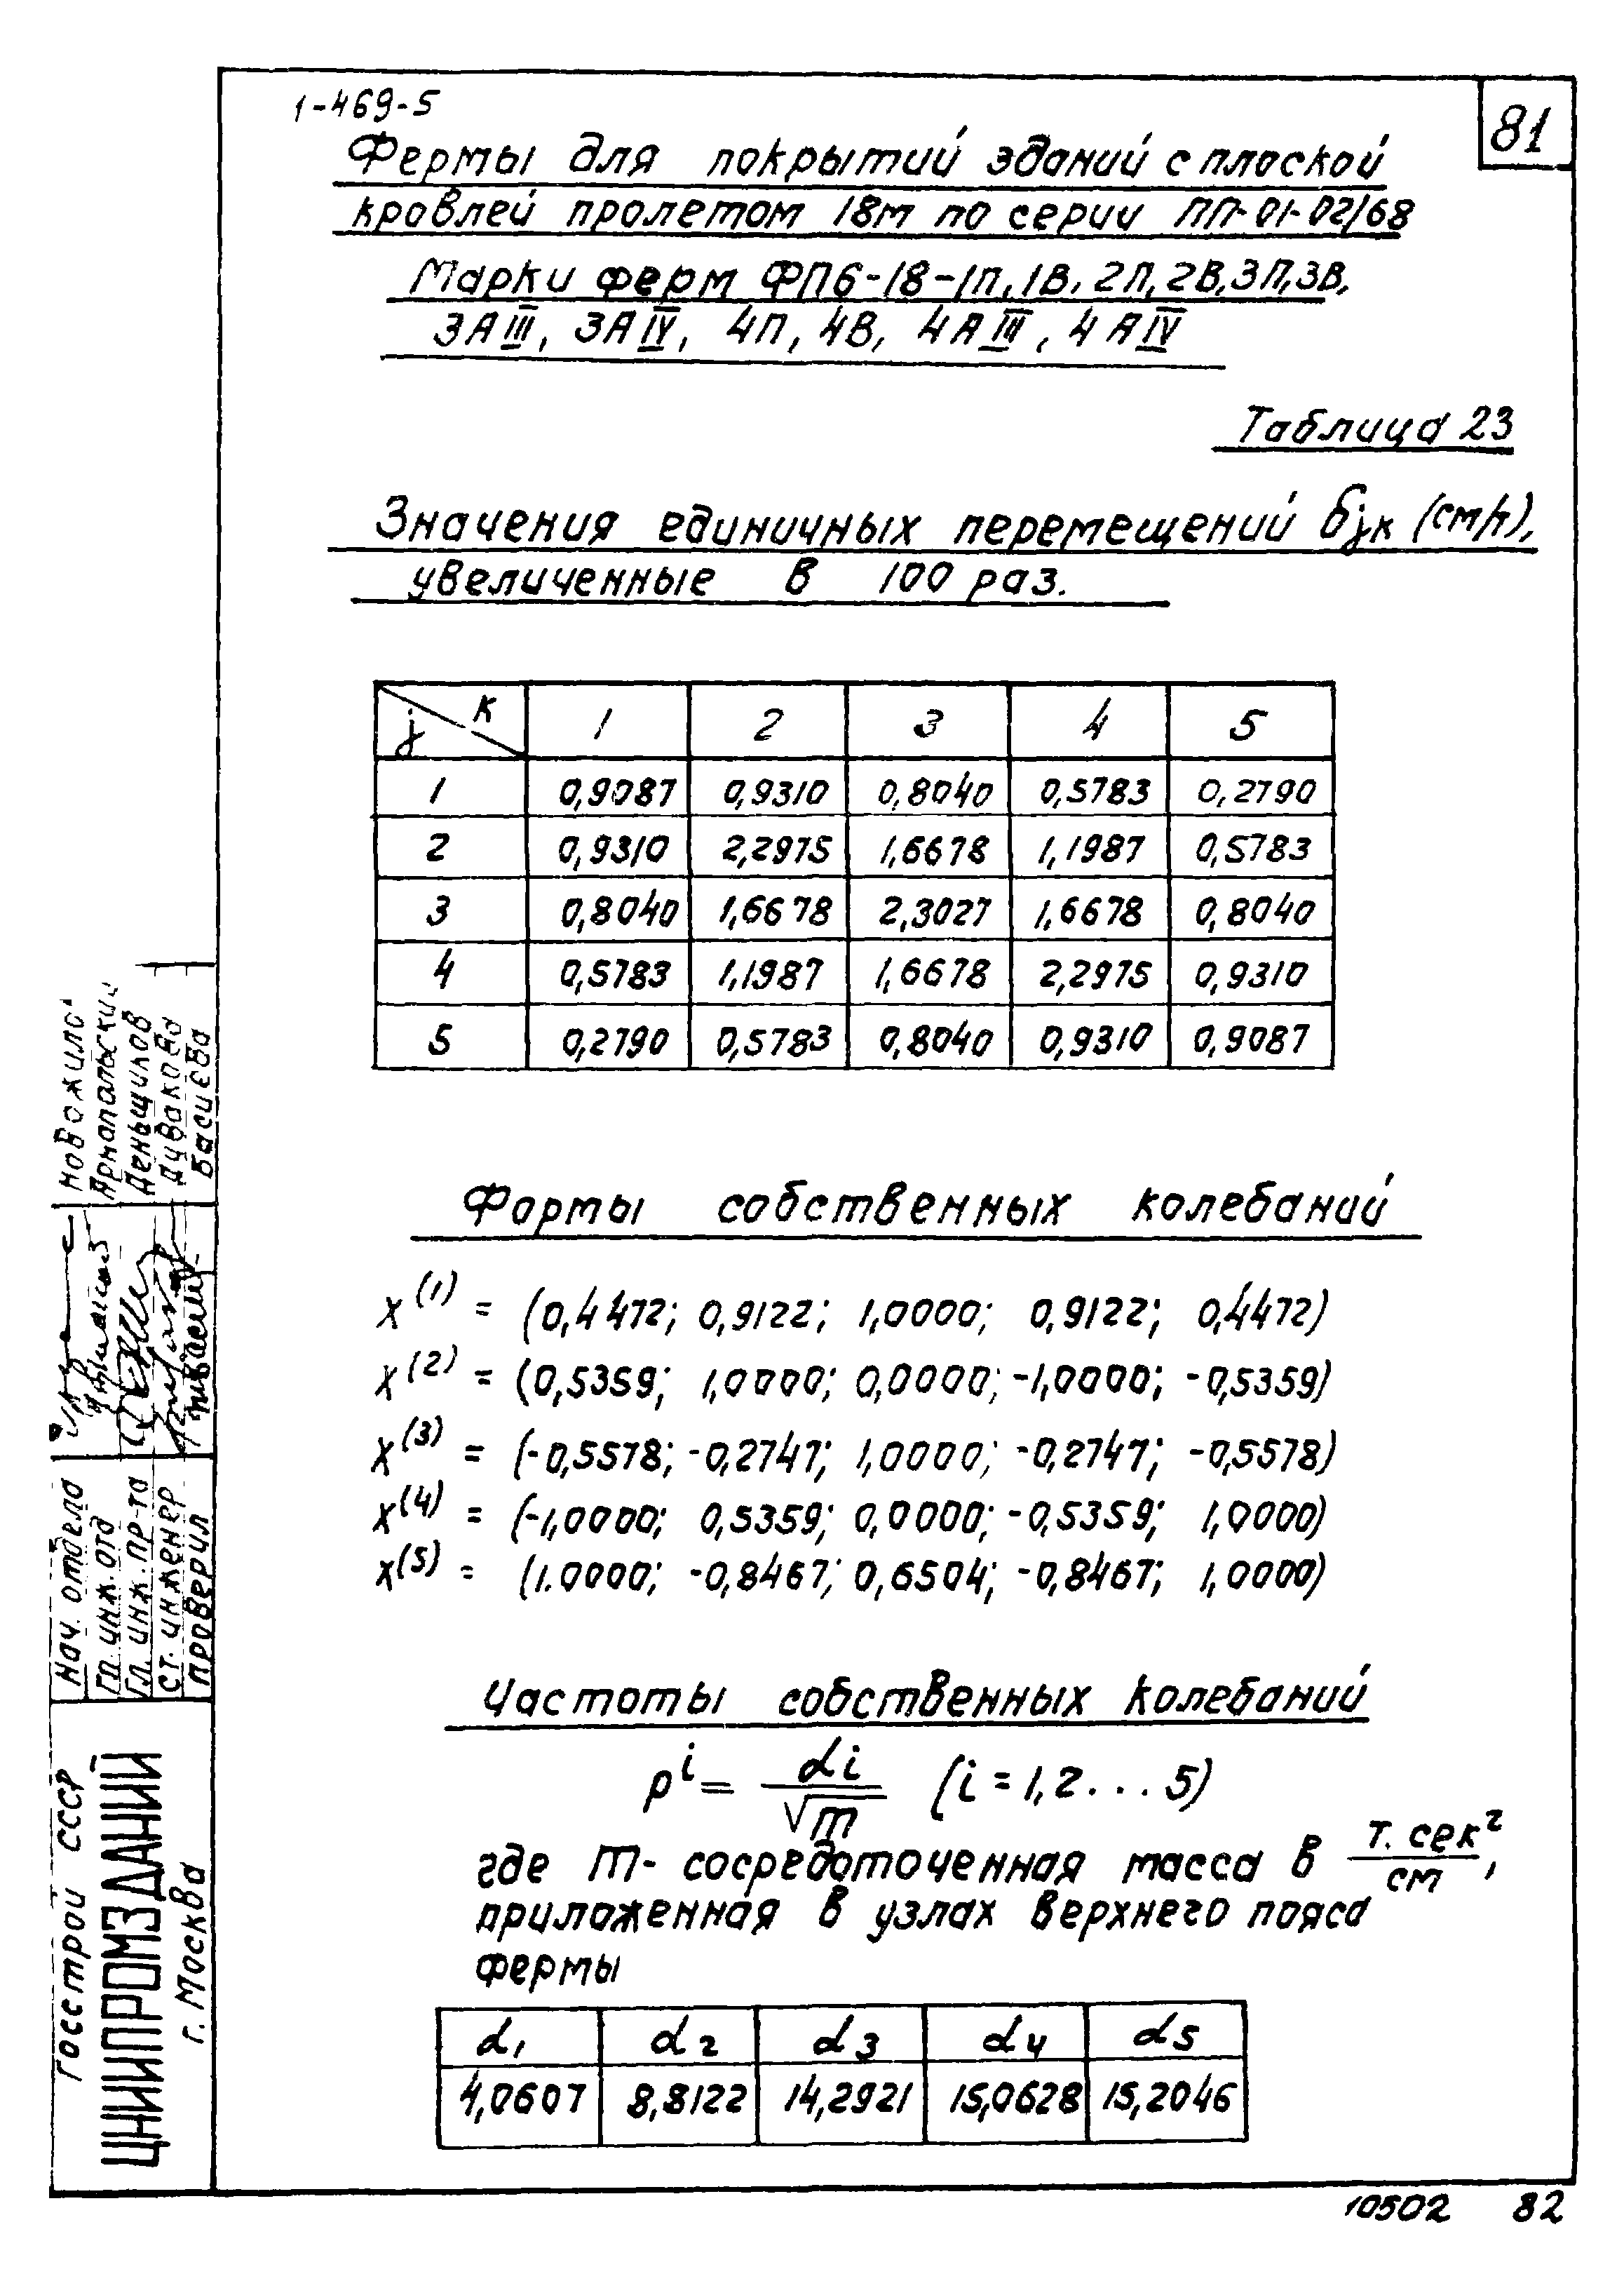 1-469-5
81
Фермы для покрытий зданий с плоской
кровлей пролетом 18м по серии ПП-01-02/68
Марки ферм ФПБ-18-1П, 1В, 2П, 2В, 3П, 3В,
3АIII, 3АIV, 4П, 4В, 4АIII, 4АIV
Таблица 23
Значения единичных перемещений δjк (см/т),
увеличенные в 100 раз.
j к 1 2 3 4 5
1 0,9087 0,9310 0,8040 0,5783 0,2790
2 0,9310 2,2975 1,6678 1,1987 0,5783
3 0,8040 1,6678 2,3027 1,6678 0,8040
4 0,5783 1,1987 1,6678 2,2975 0,9310
5 0,2790 0,5783 0,8040 0,9310 0,9087
Формы собственных колебаний
X(1) = (0,4472; 0,9122; 1,0000; 0,9122; 0,4472)
X(2) = (0,5359; 1,0000; 0,0000; -1,0000; -0,5359)
X(3) = (-0,5578; -0,2747; 1,0000; -0,2747; -0,5578)
X(4) = (-1,0000; 0,5359; 0,0000; -0,5359; 1,0000)
X(5) = (1.0000; -0,8467; 0,6504; -0,8467; 1,0000)
Частоты собственных колебаний
pⁱ = αi / √m (i = 1,2...5)
где m - сосредоточенная масса в т.сек²/см,
приложенная в узлах верхнего пояса
фермы
α1 α2 α3 α4 α5
4,0607 8,8122 14,2921 15,0628 15,2046
Госстрой СССР
ЦНИИПРОМЗДАНИЙ
г. Москва
Нач. отдела
Гл. инж. отд
Гл. инж. пр-та
Ст. инженер
Проверил
Деньщиков
Дувакова
Басиева
10502 82